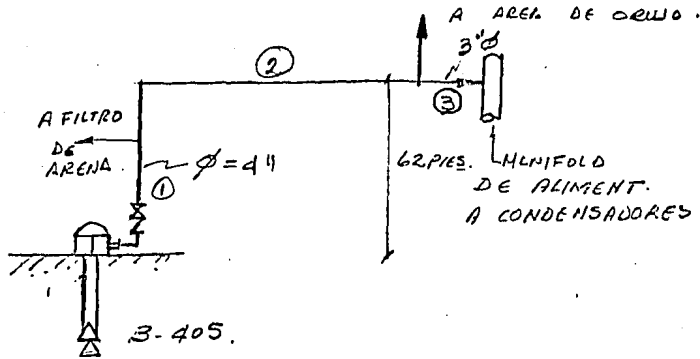 A AREA DE ORUJO.
3"Ø
②
③
A FILTRO
DE
ARENA.
Ø = 4"
①
62 PIES.
MENIFOLD
DE ALIMENT.
A CONDENSADORES
B-405.